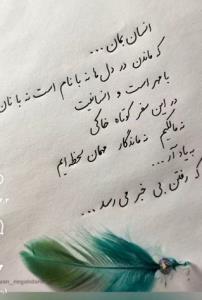 انسان بمان ...
که ماندن در دل ها نه با نام است نه با نان
با مهر است و انسانیت
در این سفر کوتاه خاکی
نه مالکیم نه ماندگار مهمان لحظه ایم
به یاد آر ...
که رفتن بی خبر می رسد ...